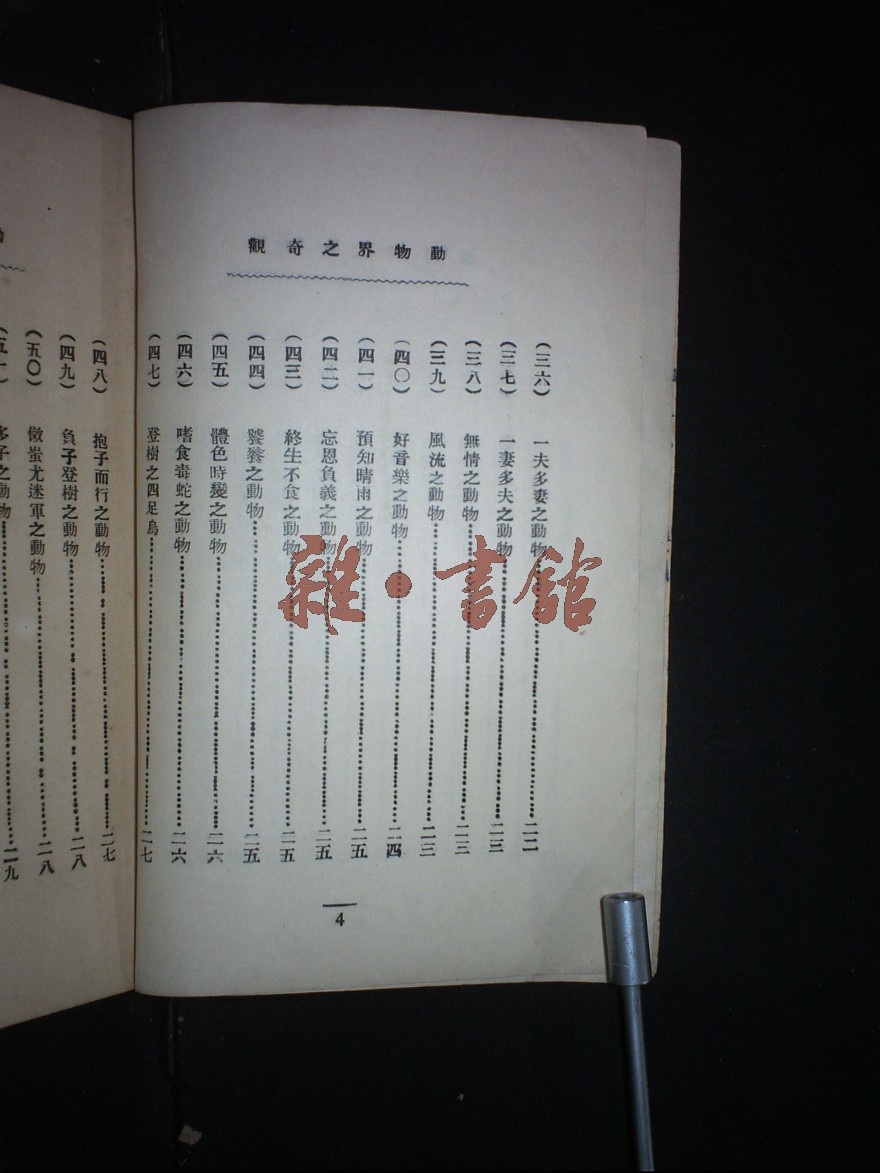 動物界之奇觀
(三六) 一夫多妻之動物 二二
(三七) 一妻多夫之動物 二三
(三八) 無情之動物 二三
(三九) 風流之動物 二三
(四〇) 好音樂之動物 二四
(四一) 預知晴雨之動物 二五
(四二) 忘恩負義之動物 二五
(四三) 終生不食之動物 二五
(四四) 饕餮之動物 二五
(四五) 體色時變之動物 二六
(四六) 嗜食毒蛇之動物 二六
(四七) 登樹之四足鳥 二七
4
(四八) 抱子而行之動物 二七
(四九) 負子登樹之動物 二八
(五〇) 傚蚩尤迷軍之動物 二八
(五一) 多子之動物 二九
雜·書館